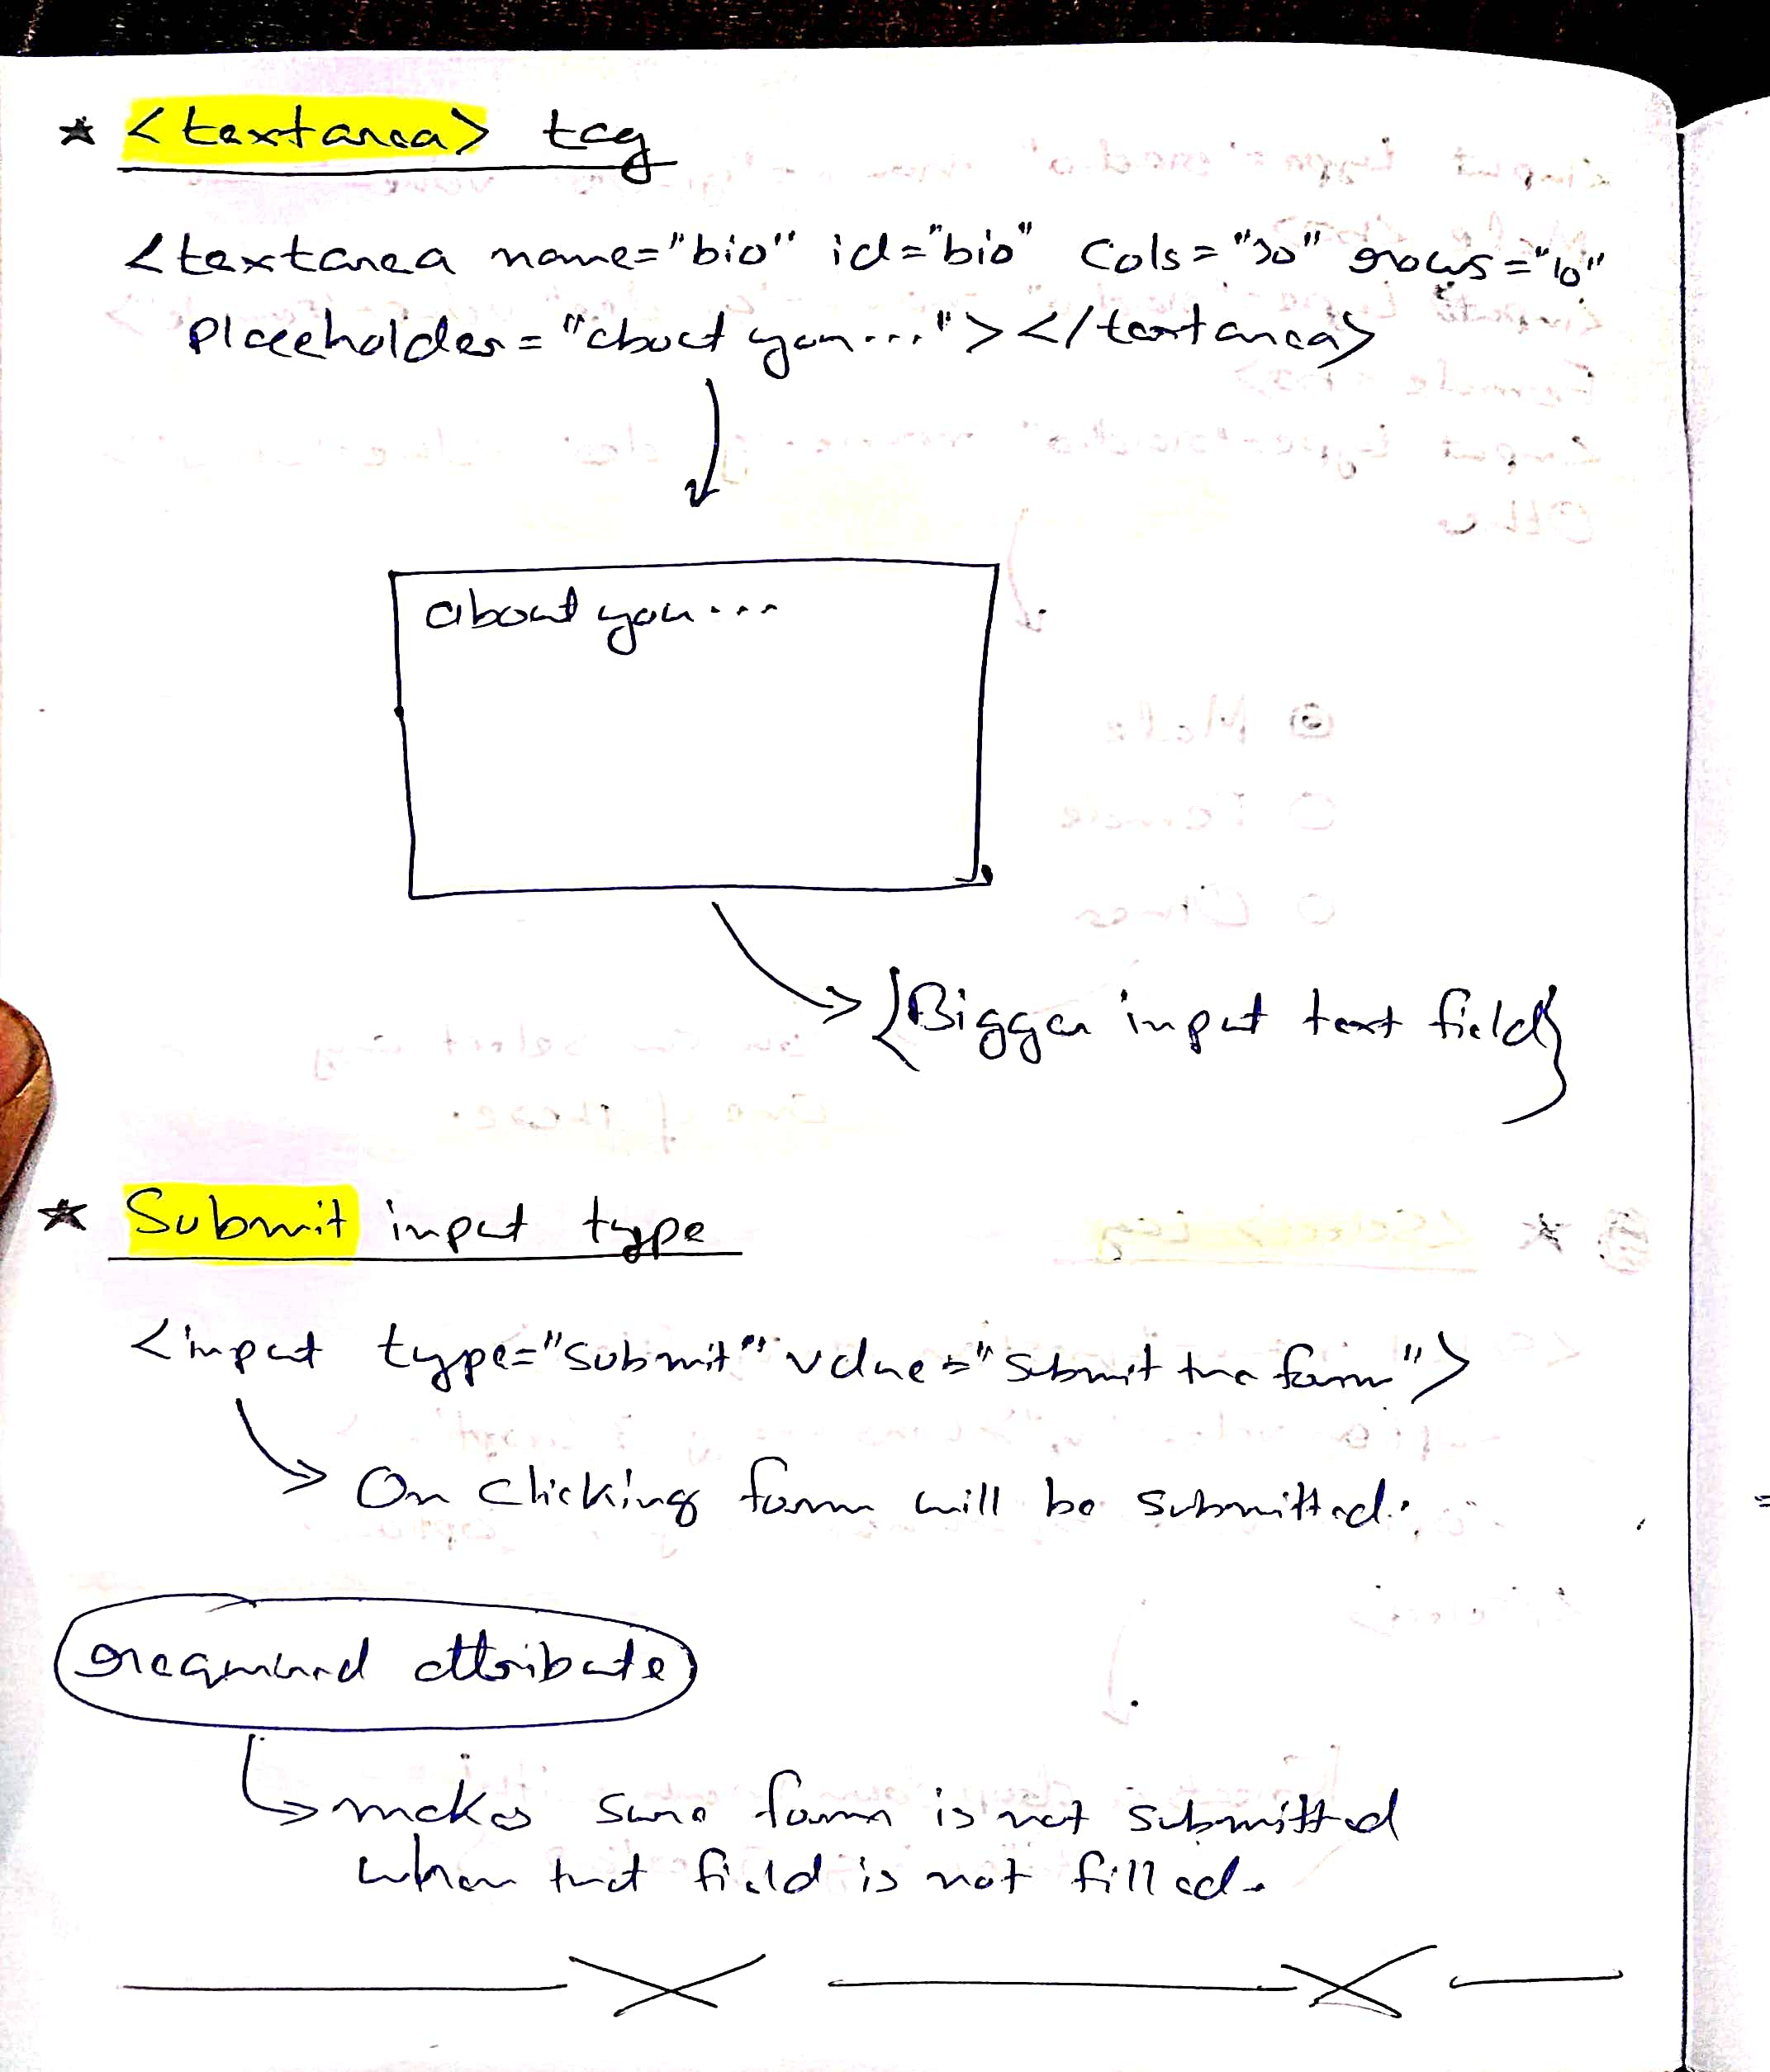 * <textarea> tag
<textarea name="bio" id="bio" cols="30" rows="10"
placeholder="about you...."></textarea>
about you...
{Bigger input text field}
* Submit input type
<input type="submit" value="submit the form">
On clicking form will be submitted.
required attribute
makes sure form is not submitted
when that field is not filled.